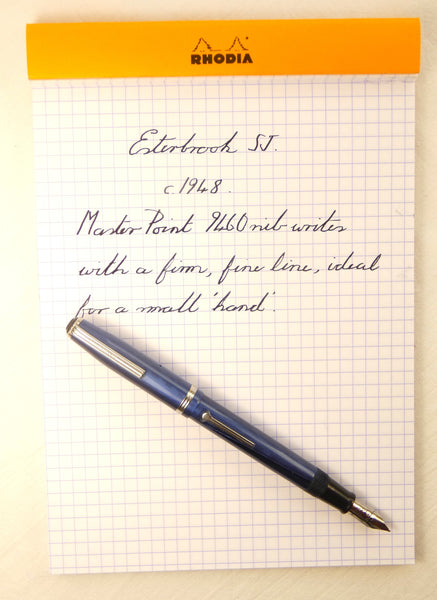 RHODIA
Esterbrook SJ.
c.1948.
Master Point 9460 nib writes
with a firm, fine line, ideal
for a small 'hand'.